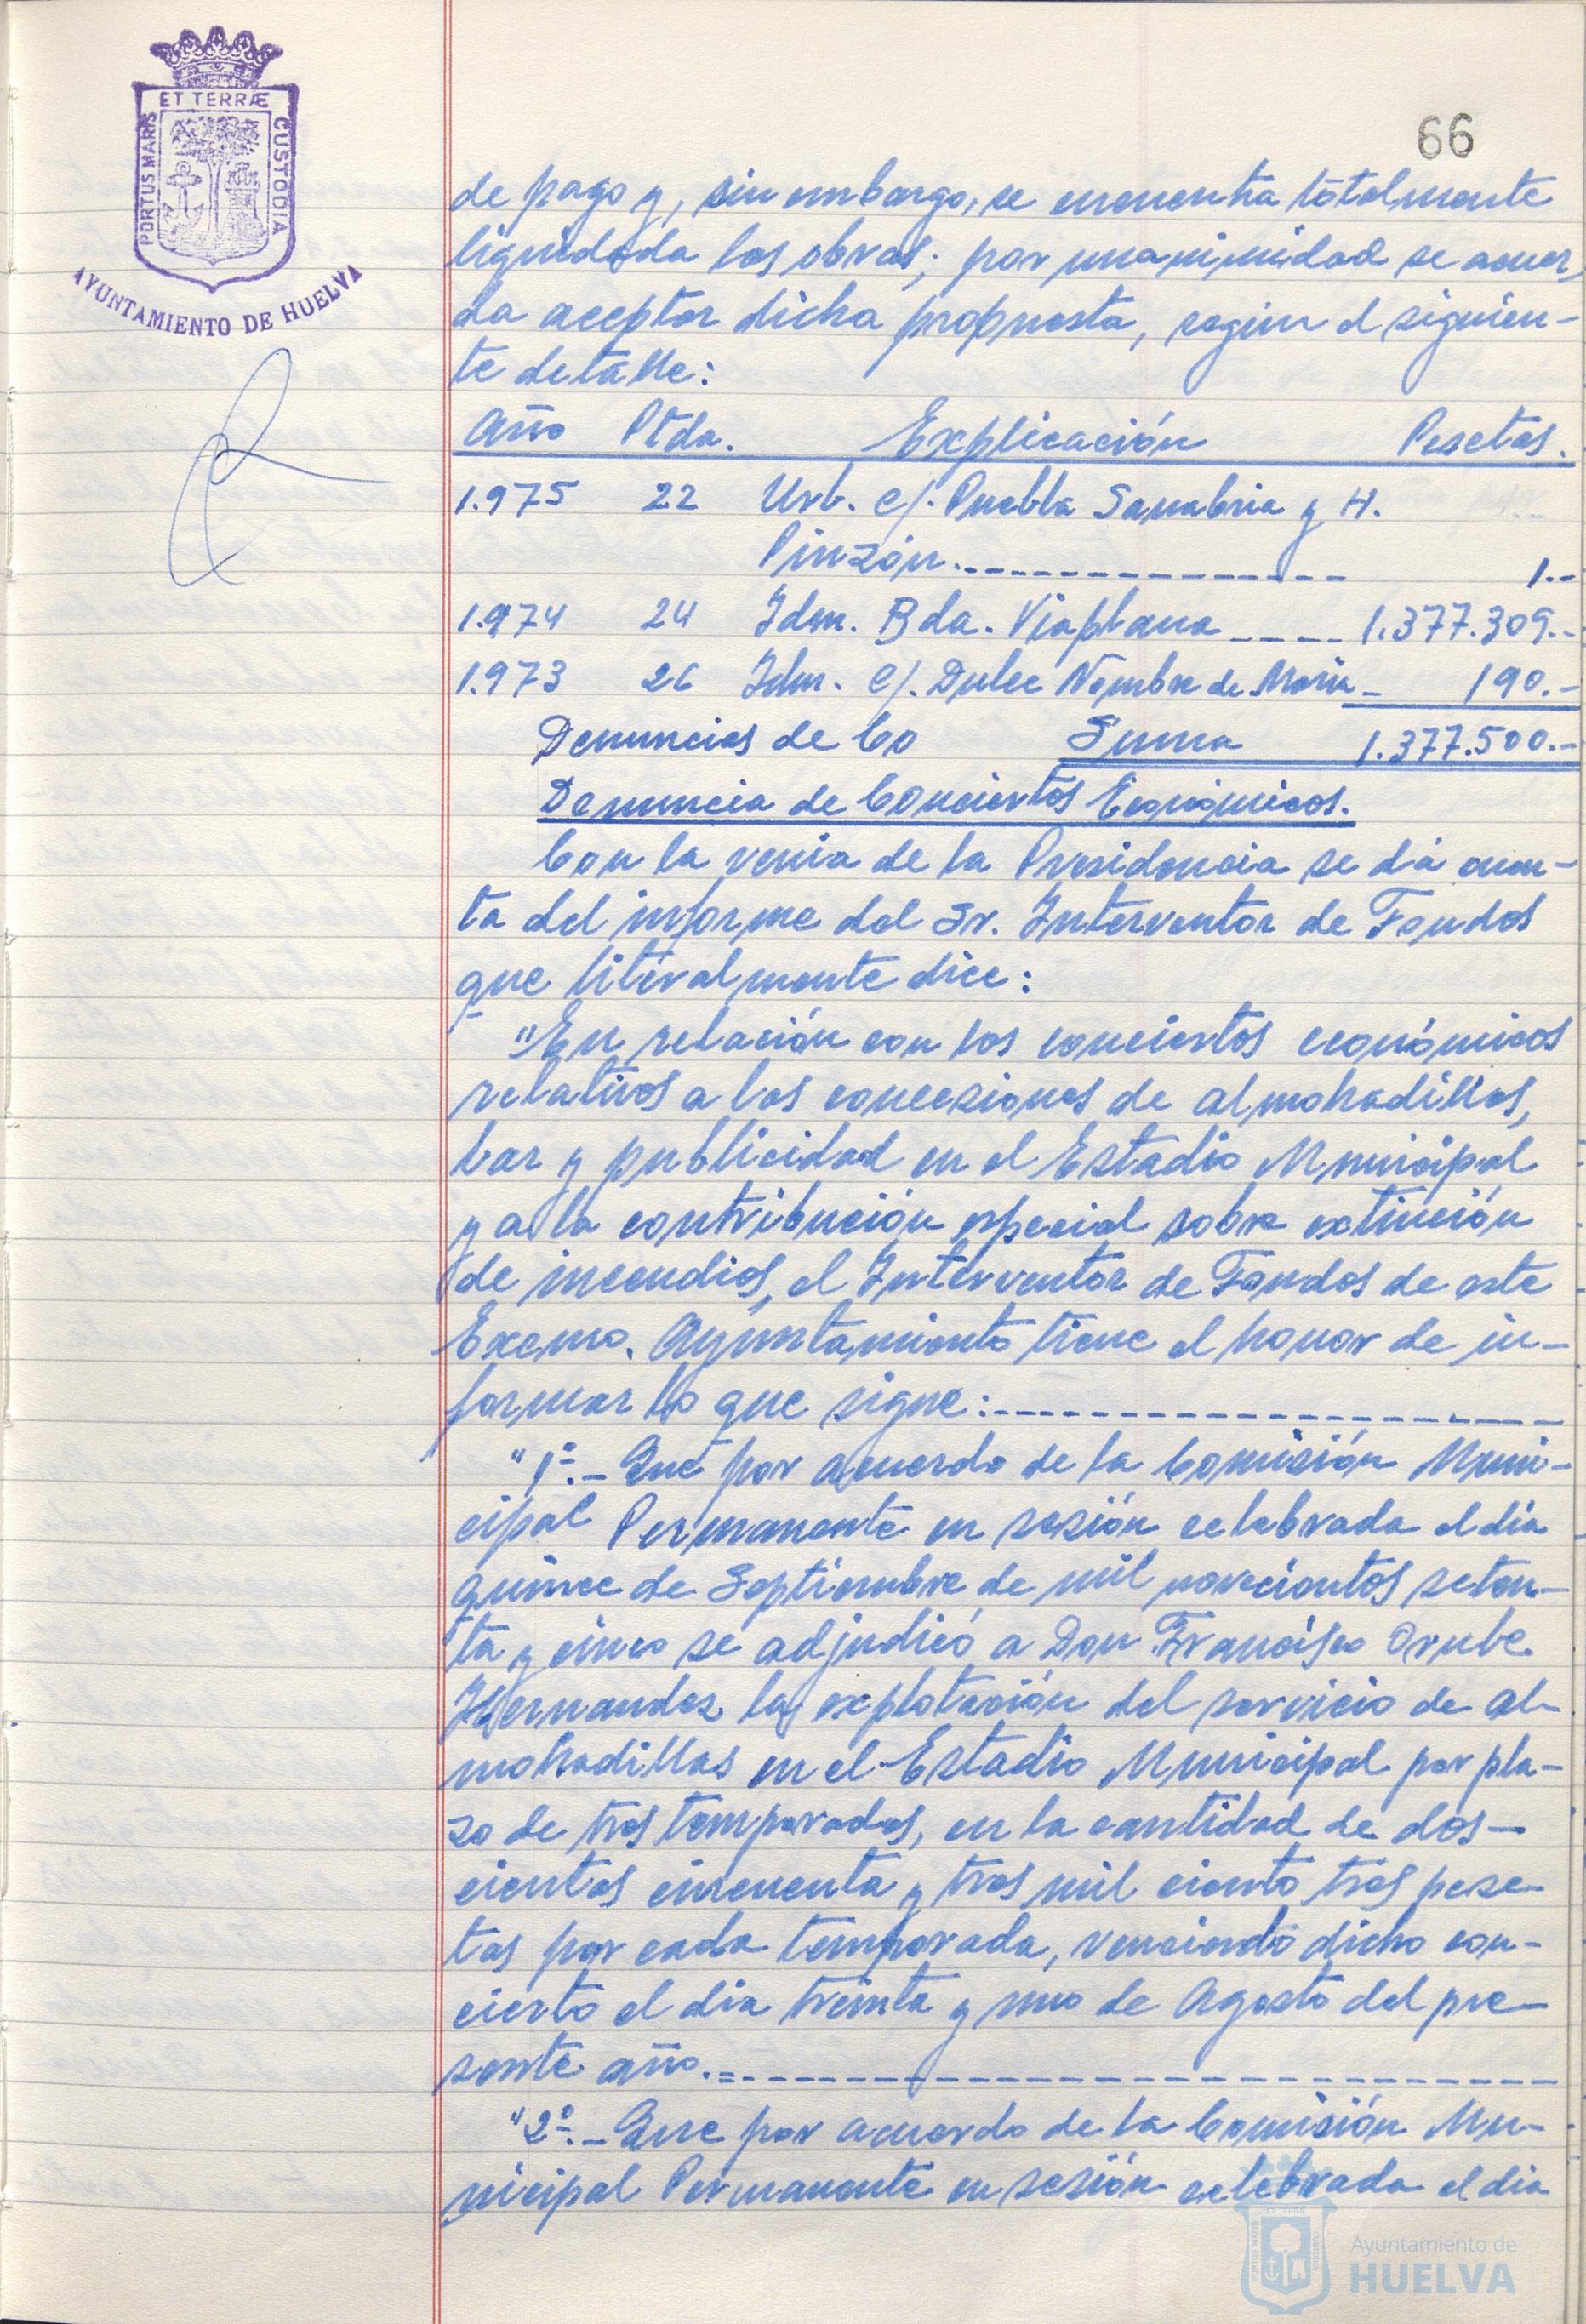 ET TERRÆ
PORTUS MARIS
CUSTODIA
AYUNTAMIENTO DE HUELVA
66
de pago y, sin embargo, se encuentra totalmente
liquidada las obras; por unanimidad se acuer
da aceptar dicha propuesta, según el siguien-
te detalle:
Año Ptda. Explicación Pesetas.
1.975 22 Urb. c/. Puebla Sanabria y H.
Pinzón.--------------- 1.-
1.974 24 Idm. Bda. Viaplana ---- 1.377.309.-
1.973 26 Idm. c/. Dulce Nombre de María- 190.-
Denuncias de Co Suma 1.377.500.-
Denuncia de Conciertos Económicos.
Con la venia de la Presidencia se dá cuen-
ta del informe del Sr. Interventor de Fondos
que literalmente dice:
"En relación con los conciertos económicos
relativos a las concesiones de almohadillas,
bar y publicidad en el Estadio Municipal
y a la contribución especial sobre extinción
de incendios, el Interventor de Fondos de este
Excmo. Ayuntamiento tiene el honor de in-
formar lo que sigue:--------------------
"1º.- Que por acuerdo de la Comisión Muni-
cipal Permanente en sesión celebrada el día
quince de Septiembre de mil novecientos seten-
ta y cinco se adjudicó a Don Francisco Orube
Hernandez la explotación del servicio de al-
mohadillas en el Estadio Municipal por pla-
zo de tres temporadas, en la cantidad de dos-
cientas cincuenta y tres mil ciento tres pese-
tas por cada temporada, venciendo dicho con-
cierto el dia treinta y uno de Agosto del pre-
sente año.------------------------------
"2º.- Que por acuerdo de la Comisión Mu-
nicipal Permanente en sesión celebrada el dia
Ayuntamiento de
HUELVA